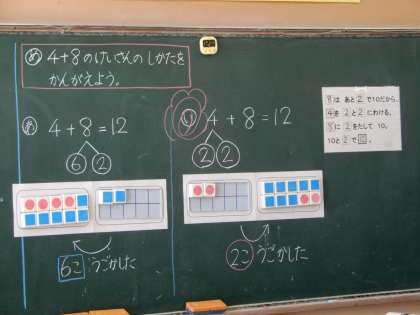 め 4+8のけいさんの しかたを
かんがえよう。
4+8=12
6 2
6こ うごかした
り 4+8=12
2 2
2こ うごかした
8は あと 2 で10だから、
4を 2と2にわける。
8に 2をたして 10。
10と 2で12。